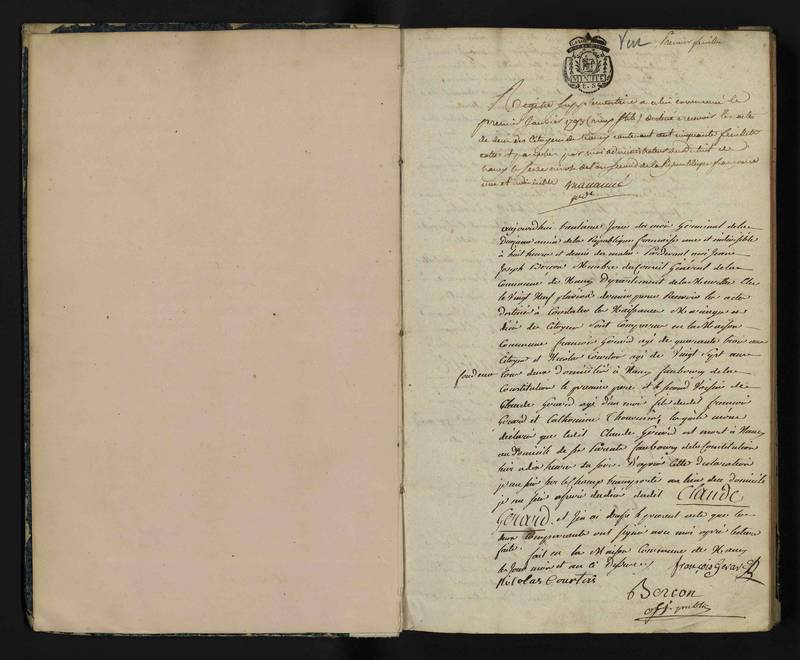 Vert Premier feuillet
MINUTE
Registre Supplementaire a celui commencé le
premier Janvier 1793 (vieux stile) destiné a recevoir les actes
de deces des Citoyens de Nancy contenant cent cinquante feuillets
cotés et paraphés par moi administrateur du district de
Nancy le seize nivose l'an second de la Republique française
une et indivisible
aujourdhui huitaine Jour du mois Germinal de la
Deuxieme année de la Republique française une et indivisible
à huit heures et demie du matin. Pardevant moi Jean
Joseph Borcon Membre du Conseil Général de la
Commune de Nancy Departement de la Meurthe Elu
le Vingt Neuf pluviose dernier pour Recevoir les actes
destinés à Constater la Naissance Mariages et
décès des Citoyens Sont Comparus en la Maison
Commune francois Gérard agé de quarante trois ans
Citoyen et Nicolas Courtois agé de Vingt Sept ans
tous deux domiciliés à Nancy faubourg de la
Constitution le premier pere et le second Voisin de
Claude Gérard agé d'un mois fils dudit francois
Gérard et Catherine lesquels m'ont
déclaré que ledit Claude Gérard est mort à Nancy
au domicile de ses Parents faubourg de la Constitution
hier a dix heures du soir. D'après Cette declaration
je me suis sur le Champ transporté au lieu du domicile
je me suis assuré du décès dudit Claude
Gérard. et J'en ai Dressé le présent acte que les
deux Comparants ont signé avec moi après lecture
faite. fait en la Maison Commune de Nancy
les Jour mois et an ci Dessus. françois Gerard
Nicolas Courtois
Borcon
off. public